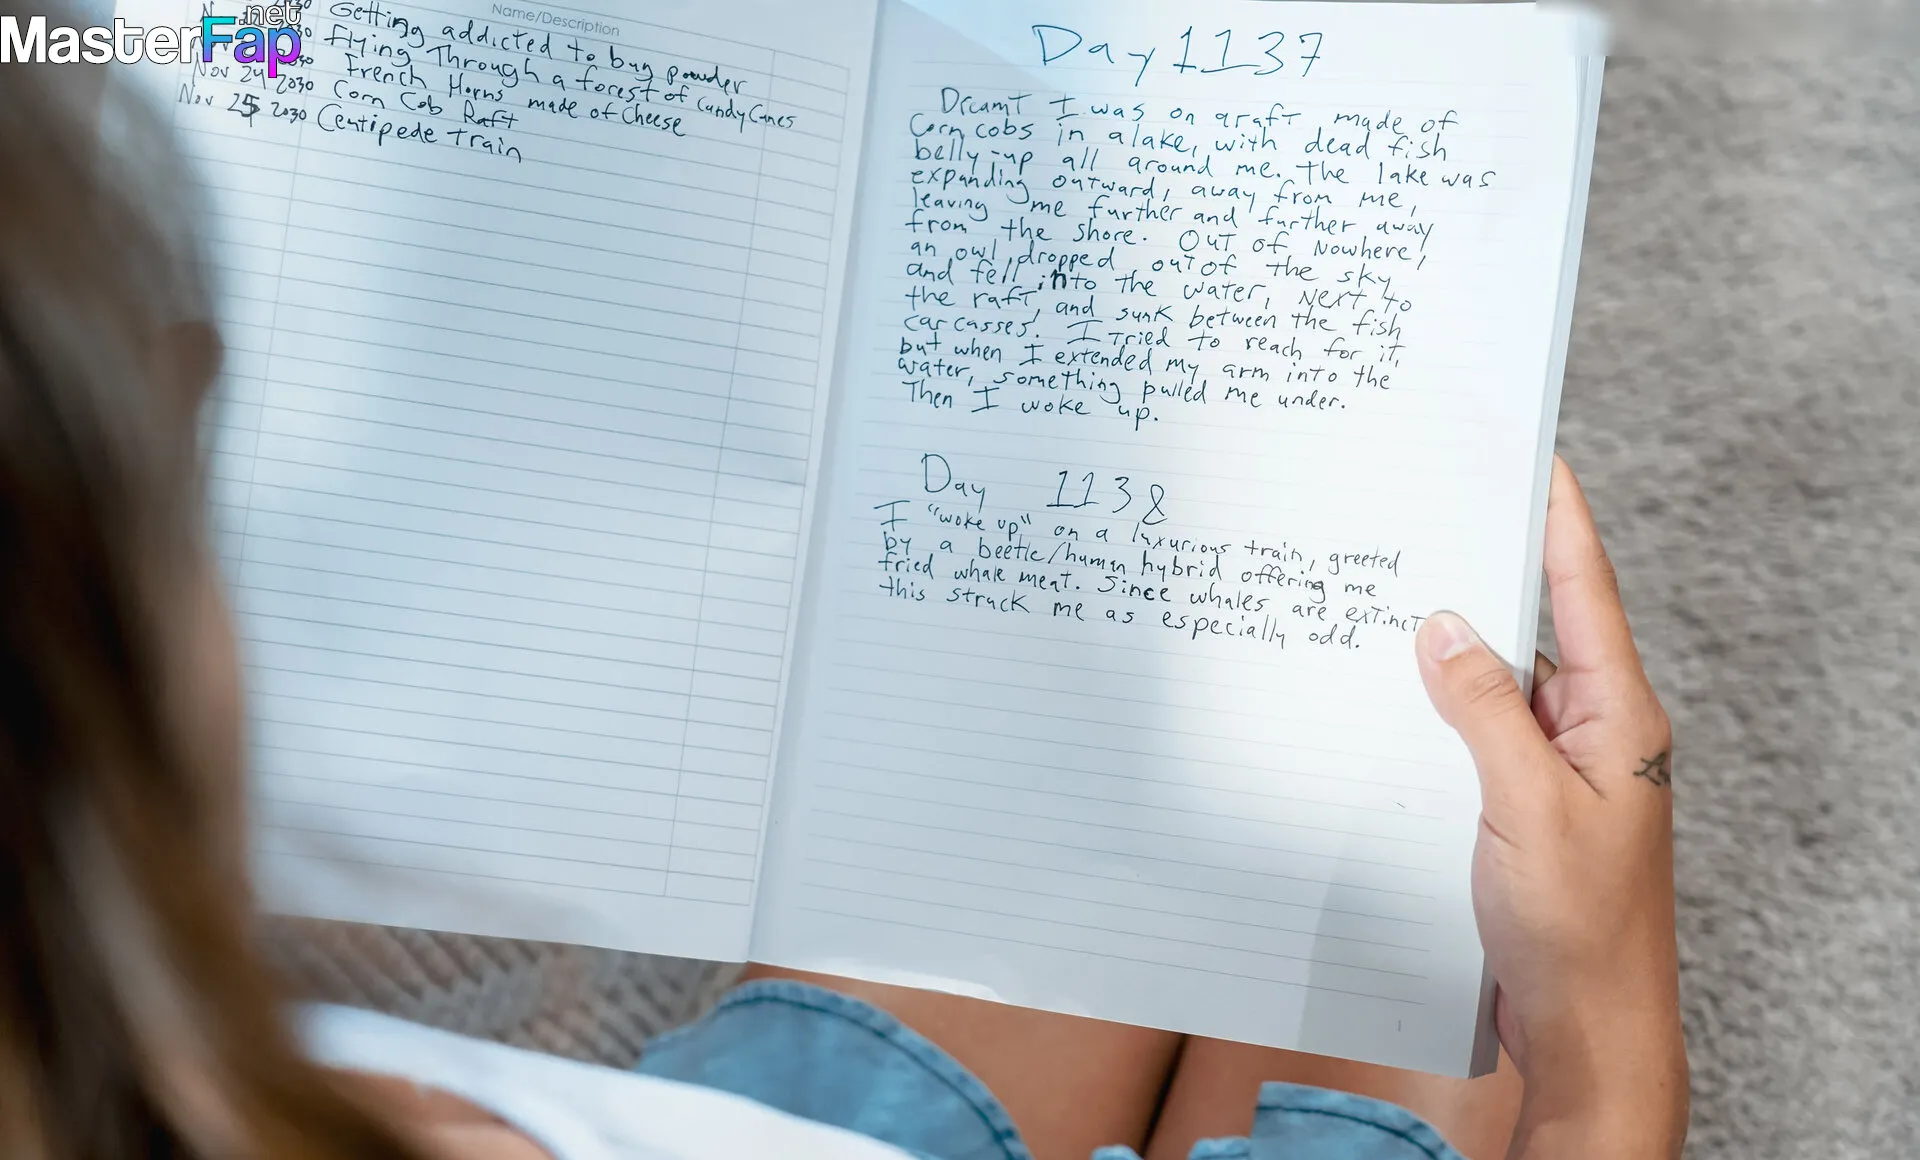 MasterFap
.net
Name/Description
Getting addicted to bug powder
Flying Through a forest of Candy Canes
French Horns made of Cheese
Nov 24 2030 Corn Cob Raft
Nov 25 2030 Centipede Train
Day 1137
Dreamt I was on a raft made of
Corn cobs in a lake, with dead fish
belly-up all around me. The lake was
expanding outward, away from me,
leaving me further and further away
from the shore. Out of Nowhere,
an owl dropped out of the sky
and fell into the water, Next to
the raft, and sunk between the fish
carcasses. I Tried to reach for it,
but when I extended my arm into the
water, something pulled me under.
Then I woke up.
Day 1138
I "woke up" on a luxurious train, greeted
by a beetle/human hybrid offering me
fried whale meat. Since whales are exTincT
this struck me as especially odd.